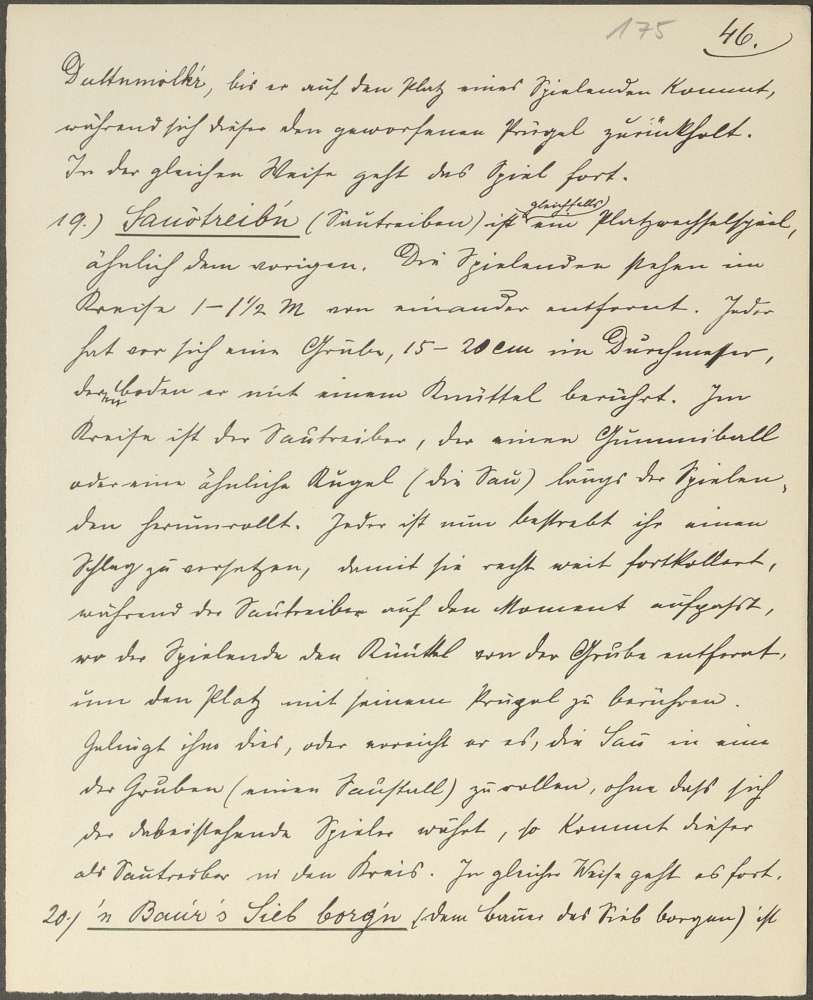 175 46.
Duttnmölkr, bis er auf den Platz eines Spielenden kommt,
während sich dieser den geworfenen Prügel zurückholt.
In der gleichen Weise geht das Spiel fort.
19.) Sauótreib'n (Sautreiben) ist gleichfalls ein Platzwechselspiel,
ähnlich dem vorigen. Die Spielenden stehen im
Kreise 1–1½ M von einander entfernt. Jeder
hat vor sich eine Grube, 15–20 cm im Durchmesser,
deren Boden er mit einem Knüttel berührt. Im
Kreise ist der Sautreiber, der einen Gummiball
oder eine ähnliche Kugel (die Sau) längs der Spielen-
den herumrollt. Jeder ist nun bestrebt ihr einen
Schlag zu versetzen, damit sie recht weit fortkollert,
während der Sautreiber auf den Moment aufpasst,
wo der Spielende den Knüttel von der Grube entfernt,
um den Platz mit seinem Prügel zu berühren.
Gelingt ihm dies, oder erreicht er es, die Sau in eine
der Gruben (einen Saustall) zu rollen, ohne dass sich
der dabeistehende Spieler wehrt, so kommt dieser
als Sautreiber in den Kreis. In gleicher Weise geht es fort.
20.) 'n Baur's Sieb borg'n (dem Bauer das Sieb borgen) ist